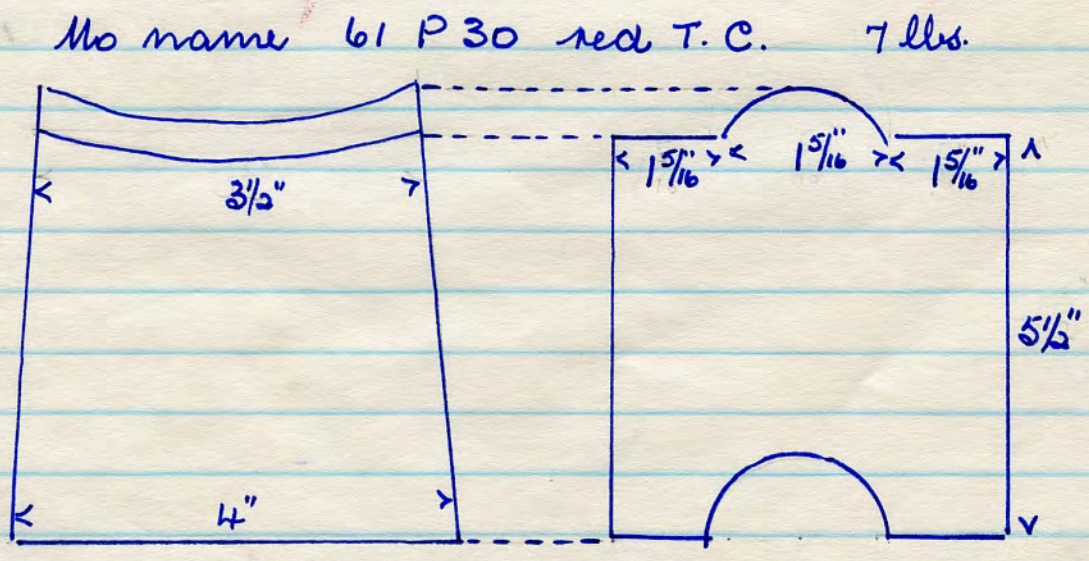 No name 61 P 30 red T. C. 7 lbs.
3 1/2" 1 5/16" 1 5/16" 1 5/16"
5 1/2"
4"